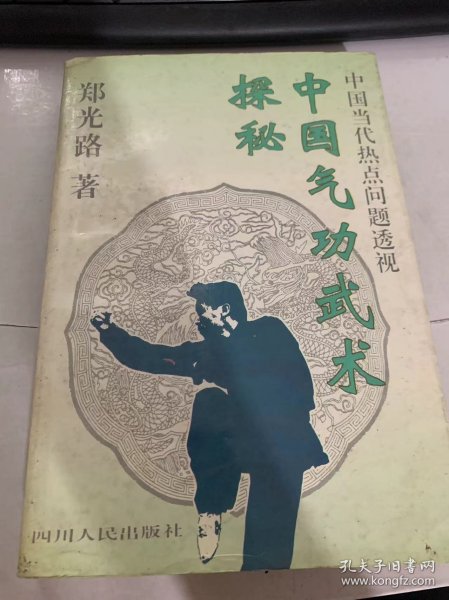 中国当代热点问题透视
中国气功武术
探秘
郑光路 著
四川人民出版社
孔夫子旧书网
www.kongfz.com